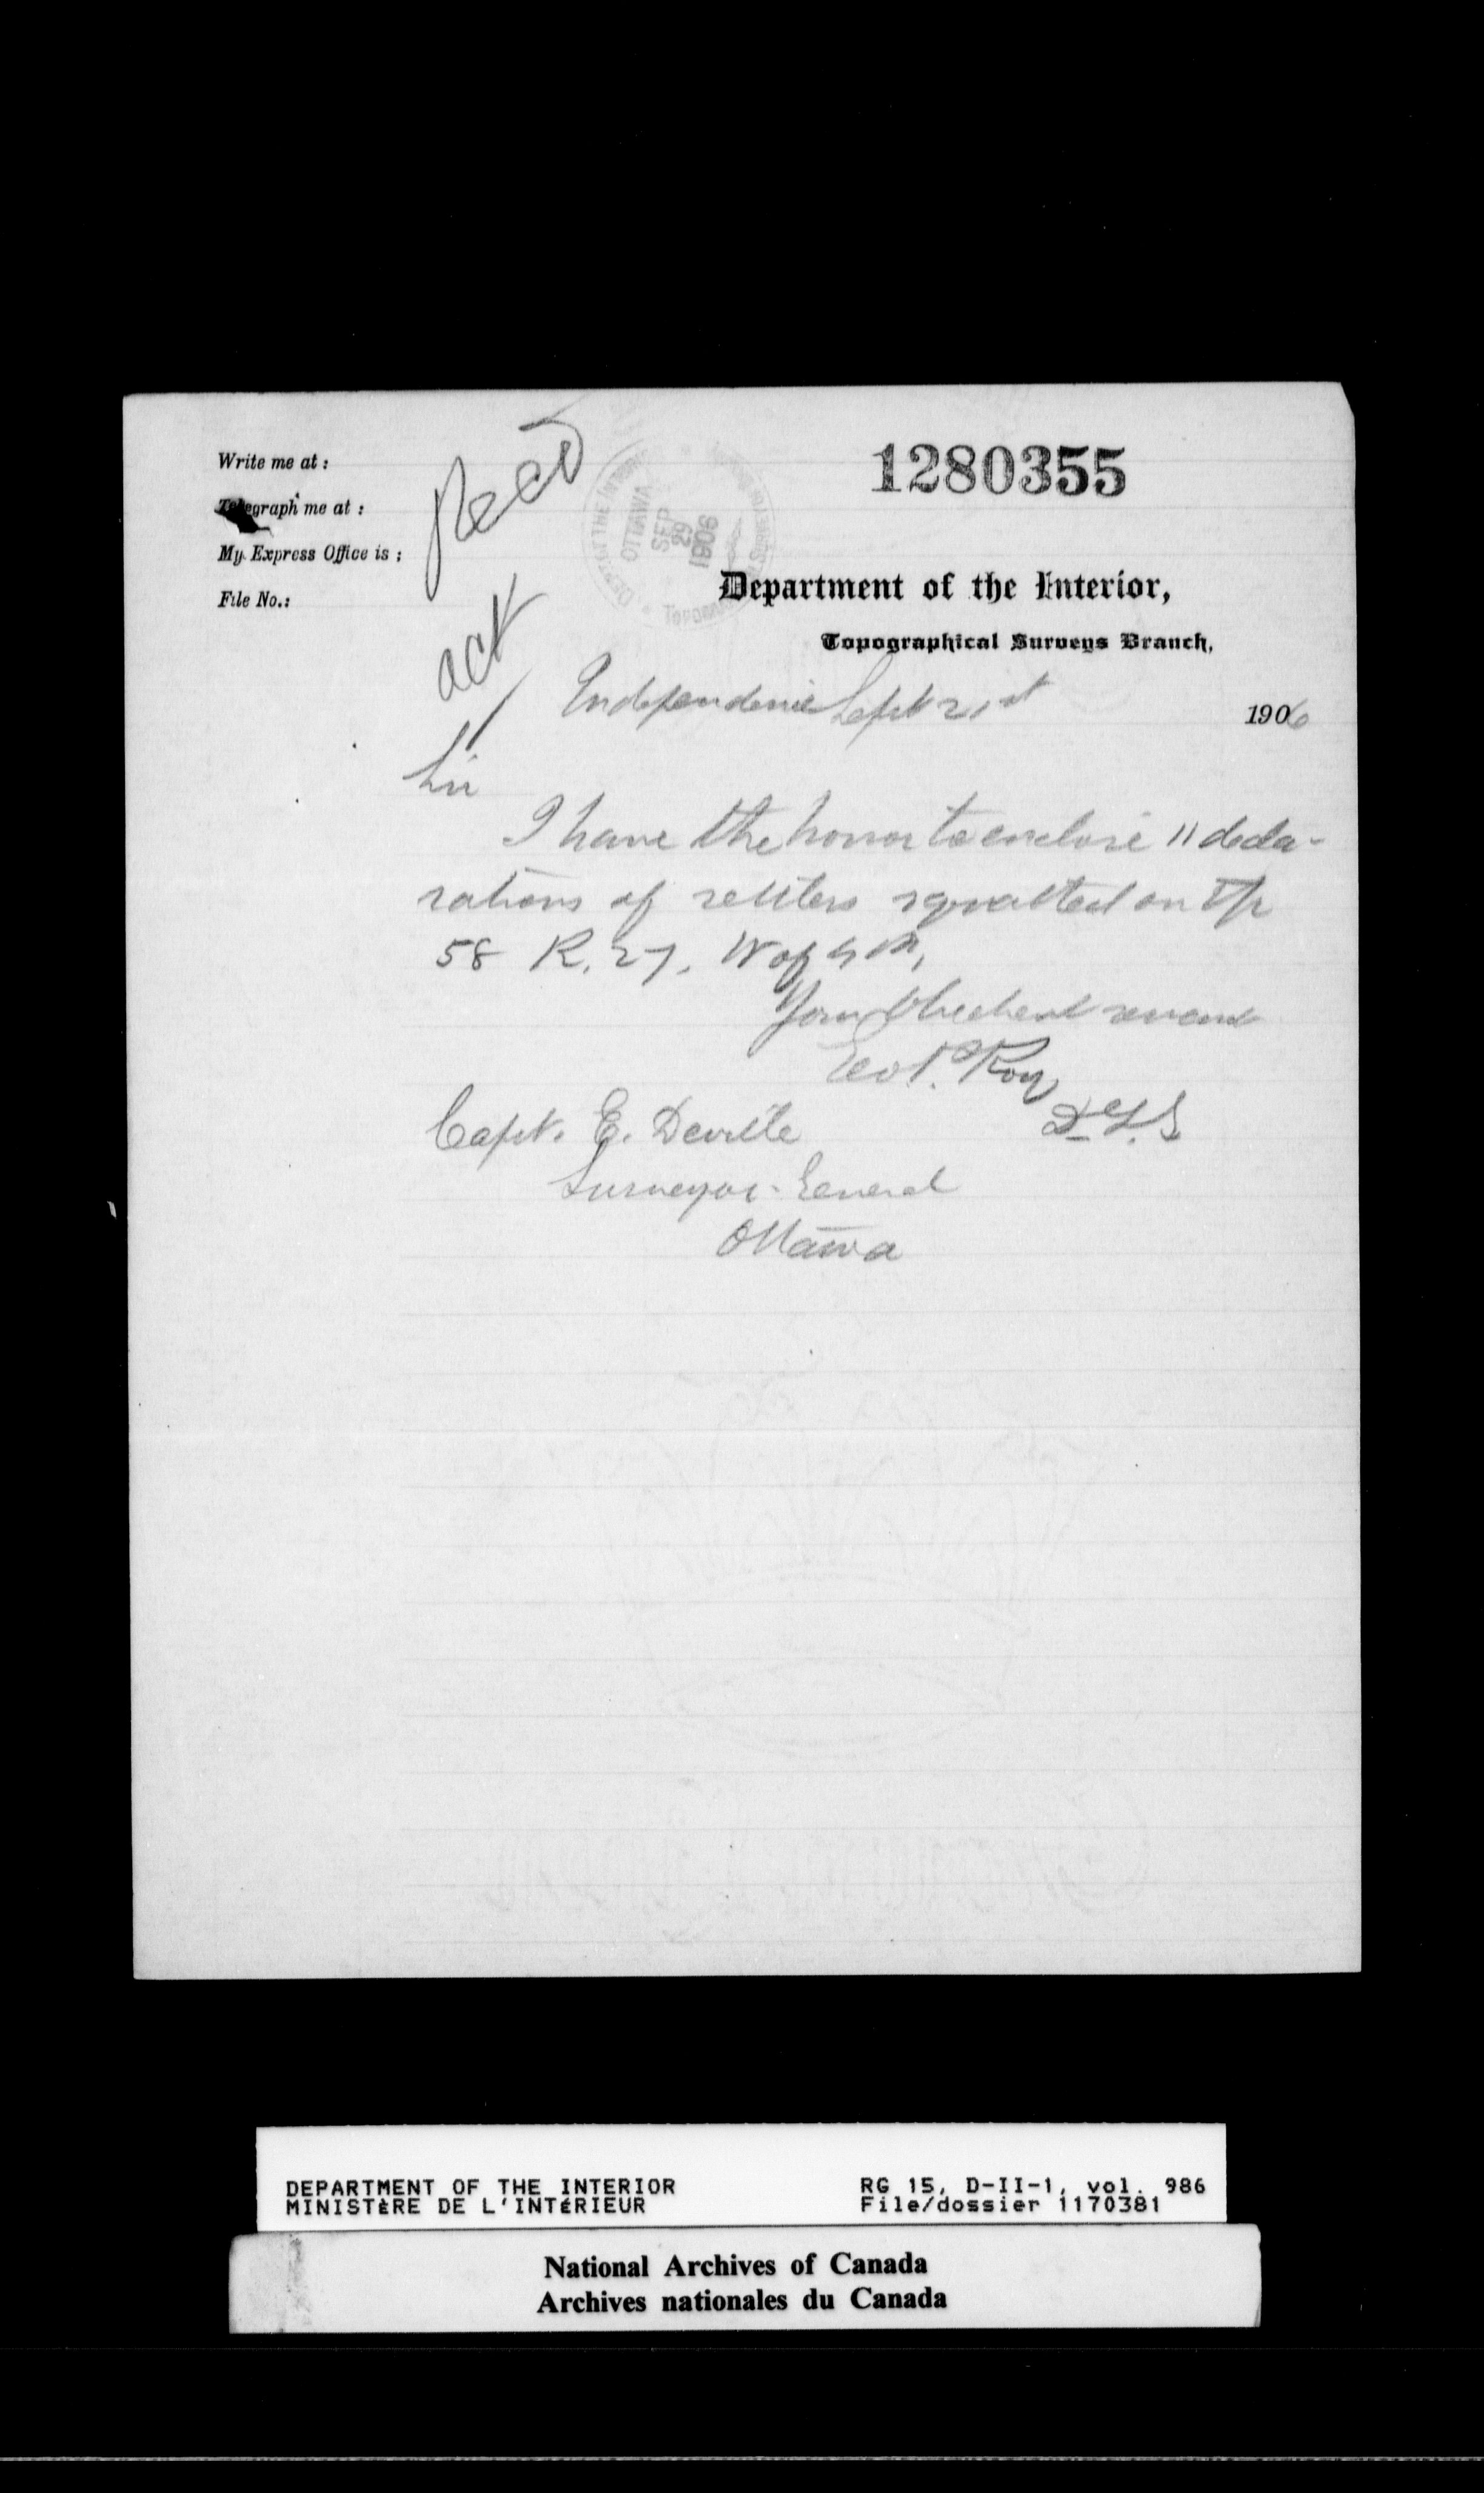 Write me at :
Telegraph me at :
My Express Office is :
File No.:
Recd
ack
1280355
DEPT OF THE INTERIOR
OTTAWA
SEP
29
1906
Department of the Interior,
Topographical Surveys Branch,
Independence Sept 21st 1906
Sir
I have the honor to enclose 11 decla-
rations of settlers squatted on Tp
58 R. 27. W of 4 M,
Your Obedient servant
Geo P. Roy
D.L.S
Capt. E. Deville
Surveyor-General
Ottawa
DEPARTMENT OF THE INTERIOR
MINISTÈRE DE L'INTÉRIEUR
RG 15, D-II-1, vol. 986
File/dossier 1170381
National Archives of Canada
Archives nationales du Canada